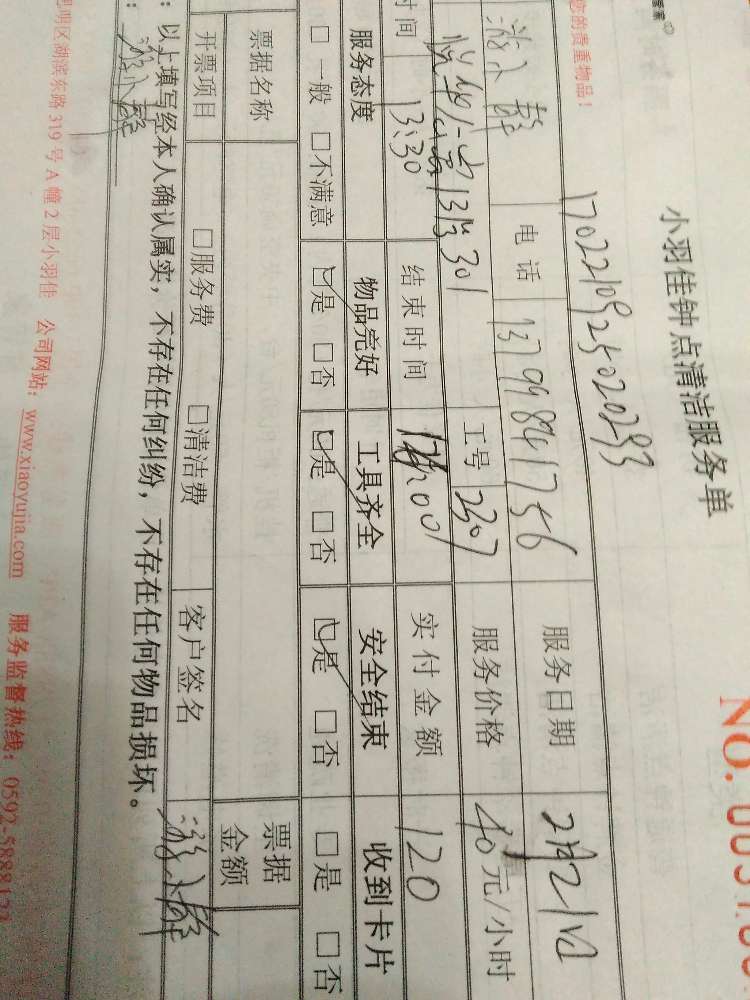 小羽佳钟点清洁服务单
NO.
您的贵重物品！
170221092502029
电话 服务日期 2月21日
工号 2307 服务价格 40元/小时
时间 13:30 结束时间 实付金额 120
服务态度 物品完好 工具齐全 安全结束 收到卡片
□一般 □不满意 □是 □否 □是 □否 □是 □否 □是 □否
票据名称 票据金额
开票项目 □服务费 □清洁费 客户签名
：以上填写经本人确认属实，不存在任何纠纷，不存在任何物品损坏。
明区湖滨东路319号A幢2层小羽佳 公司网站：www.xiaoyujia.com 服务监督热线：0592-5888123